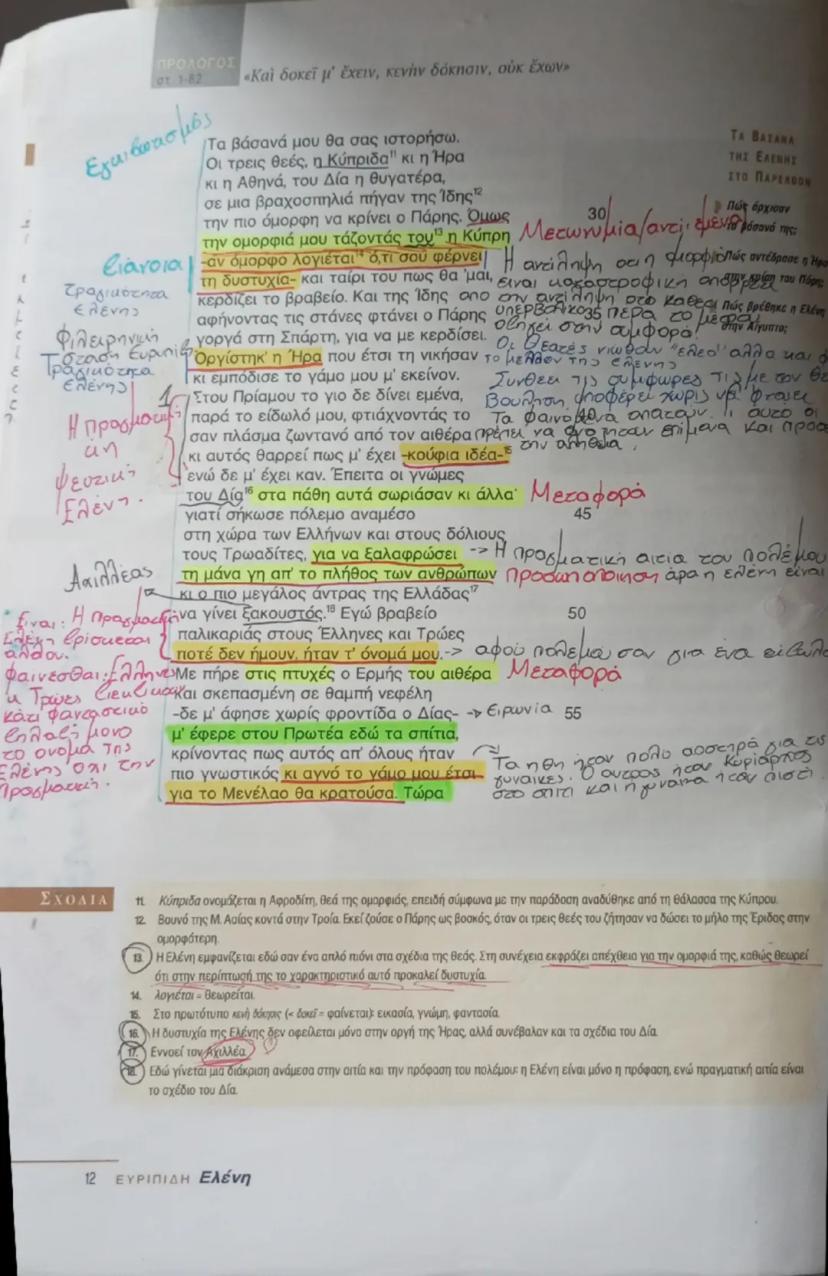 ΠΡΟΛΟΓΟΣ
στ. 1-82
«Καὶ δοκεῖ μ' ἔχειν, κενὴν δόκησιν, οὐκ ἔχων»
ΤΑ ΒΑΣΑΝΑ
ΤΗΣ ΕΛΕΝΗΣ
ΣΤΟ ΠΑΡΕΛΘΟΝ
Πώς άρχισαν
τα βάσανά της;
Πώς αντέδρασε η Ήρα
στην κρίση του Πάρη;
Πώς βρέθηκε η Ελένη
στην Αίγυπτο;
Τα βάσανά μου θα σας ιστορήσω.
Οι τρεις θεές, η Κύπριδα¹¹ κι η Ήρα
κι η Αθηνά, του Δία η θυγατέρα,
σε μια βραχοσπηλιά πήγαν της Ίδης¹²
την πιο όμορφη να κρίνει ο Πάρης. Όμως 30
την ομορφιά μου τάζοντάς του¹³ η Κύπρη
-αν όμορφο λογιέται¹⁴ ό,τι σου φέρνει
τη δυστυχία- και ταίρι του πως θα 'μαι,
κερδίζει το βραβείο. Και της Ίδης
αφήνοντας τις στάνες φτάνει ο Πάρης 35
γοργά στη Σπάρτη, για να με κερδίσει.
Οργίστηκ' η Ήρα που έτσι τη νικήσαν
κι εμπόδισε το γάμο μου μ' εκείνον.
Στου Πρίαμου το γιο δε δίνει εμένα,
παρά το είδωλό μου, φτιάχνοντάς το 40
σαν πλάσμα ζωντανό από τον αιθέρα
κι αυτός θαρρεί πως μ' έχει -κούφια ιδέα-¹⁵
ενώ δε μ' έχει καν. Έπειτα οι γνώμες
του Δία¹⁶ στα πάθη αυτά σωριάσαν κι άλλα·
γιατί σήκωσε πόλεμο αναμέσο 45
στη χώρα των Ελλήνων και στους δόλιους
τους Τρωαδίτες, για να ξαλαφρώσει
τη μάνα γη απ' το πλήθος των ανθρώπων
κι ο πιο μεγάλος άντρας της Ελλάδας¹⁷
να γίνει ξακουστός.¹⁸ Εγώ βραβείο 50
παλικαριάς στους Έλληνες και Τρώες
ποτέ δεν ήμουν, ήταν τ' όνομά μου.
Με πήρε στις πτυχές ο Ερμής του αιθέρα
και σκεπασμένη σε θαμπή νεφέλη
-δε μ' άφησε χωρίς φροντίδα ο Δίας- 55
μ' έφερε στου Πρωτέα εδώ τα σπίτια,
κρίνοντας πως αυτός απ' όλους ήταν
πιο γνωστικός κι αγνό το γάμο μου έτσι
για το Μενέλαο θα κρατούσα. Τώρα
Εγκιβωτισμός
διάνοια
Τραγικότητα
Ελένης
Φιλειρηνική
Στάση
Τραγικότητα
Ελένης
1
Η πραγματι
κή
ψευτική
Ελένη.
Αχιλλέας
Είναι: Η πραγματική
Ελένη βρίσκεται
αλλού.
φαίνεσθαι: Έλληνες
κ Τρώες διεκδικούν
κάτι φανταστικό
δηλαδή μόνο
το όνομα της
Ελένης όχι την
πραγματική.
Μετωνυμία/αντι
Η αντίληψη ότι η ομορφιά
είναι καταστροφική απορρέει
από την αντίληψη ότι το καθετί
υπερβολικό πέρα το μέτρο
οδηγεί στην συμφορά.
Οι θεατές νιώθουν "έλεο" αλλά και
το μέλλον της Ελένης
Συνδέει τις συμφορές της με τον
βούληση υποφέρει χωρίς να φταίει
Τα φαινόμενα απατούν. Γι αυτό οι
πρέπει να αναζητούν επίμονα και
την αλήθεια.
Μεταφορά
-> Η πραγματική αιτία του πολέμου
Προσωποποίηση άρα η Ελένη είναι
-> αφού πολέμησαν για ένα είδωλο
Μεταφορά
-> Ειρωνία
Τα ήθη ήταν πολύ αυστηρά για τις
γυναίκες. Ο άντρας ήταν κυρίαρχος
στο σπίτι και η γυναίκα ήταν πιστή.
ΣΧΟΛΙΑ
11. Κύπριδα ονομάζεται η Αφροδίτη, θεά της ομορφιάς, επειδή σύμφωνα με την παράδοση αναδύθηκε από τη θάλασσα της Κύπρου.
12. Βουνό της Μ. Ασίας κοντά στην Τροία. Εκεί ζούσε ο Πάρης ως βοσκός, όταν οι τρεις θεές του ζήτησαν να δώσει το μήλο της Έριδας στην
ομορφότερη.
13. Η Ελένη εμφανίζεται εδώ σαν ένα απλό πιόνι στα σχέδια της θεάς. Στη συνέχεια εκφράζει απέχθεια για την ομορφιά της, καθώς θεωρεί
ότι στην περίπτωσή της το χαρακτηριστικό αυτό προκαλεί δυστυχία.
14. λογιέται = θεωρείται.
15. Στο πρωτότυπο κενὴ δόκησις (< δοκεῖ = φαίνεται): εικασία, γνώμη, φαντασία.
16. Η δυστυχία της Ελένης δεν οφείλεται μόνο στην οργή της Ήρας, αλλά συνέβαλαν και τα σχέδια του Δία.
17. Εννοεί τον Αχιλλέα.
18. Εδώ γίνεται μια διάκριση ανάμεσα στην αιτία και την πρόφαση του πολέμου: η Ελένη είναι μόνο η πρόφαση, ενώ πραγματική αιτία είναι
το σχέδιο του Δία.
12 ΕΥΡΙΠΙΔΗ Ελένη